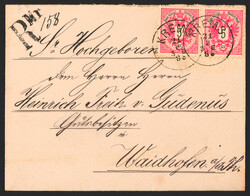 R/158
5 5
KREMS KREMS
Sr Hochgeboren
Dem Herrn Herrn
Heinrich Freih v. Gudenus
Gutsbesitzer
Waidhofen a/d Th.